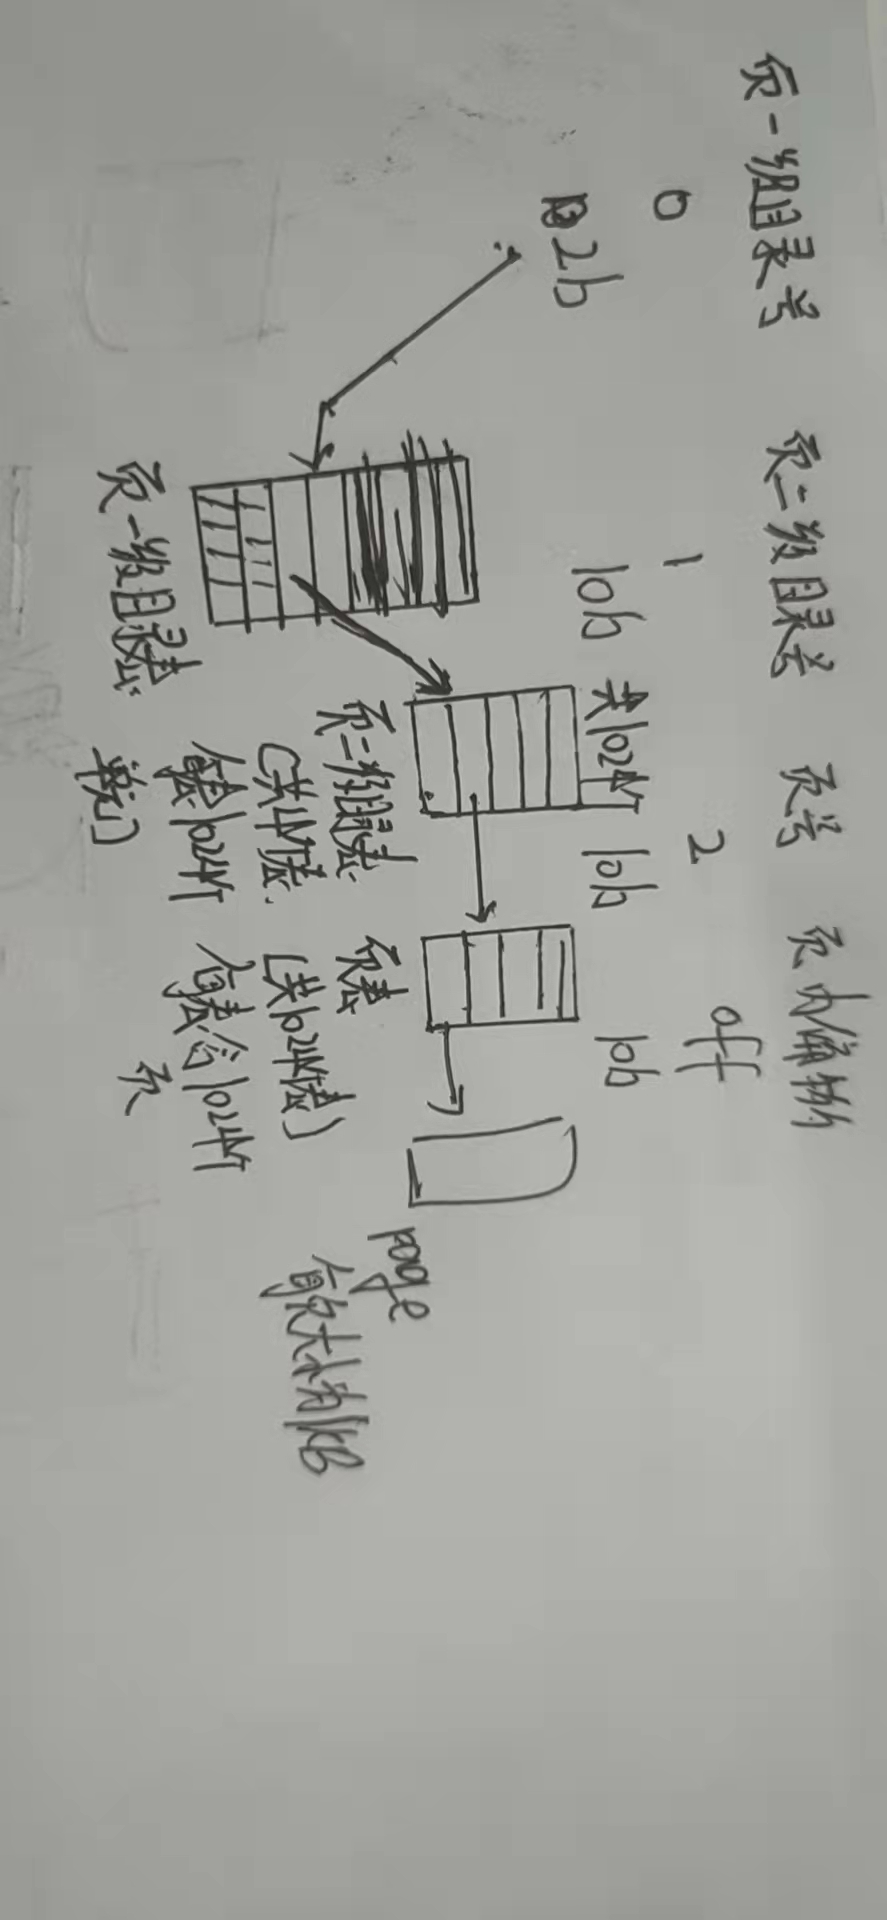 页一级目录号 页二级目录号 页号 页内偏移
0 1 2 off
2b 10b 10b 10b
共1024个
页一级目录表
页二级目录表
(共4个表
每表1024个
单元)
页表
(共1024个表)
每表含1024个
页
page
每页大小为1KB